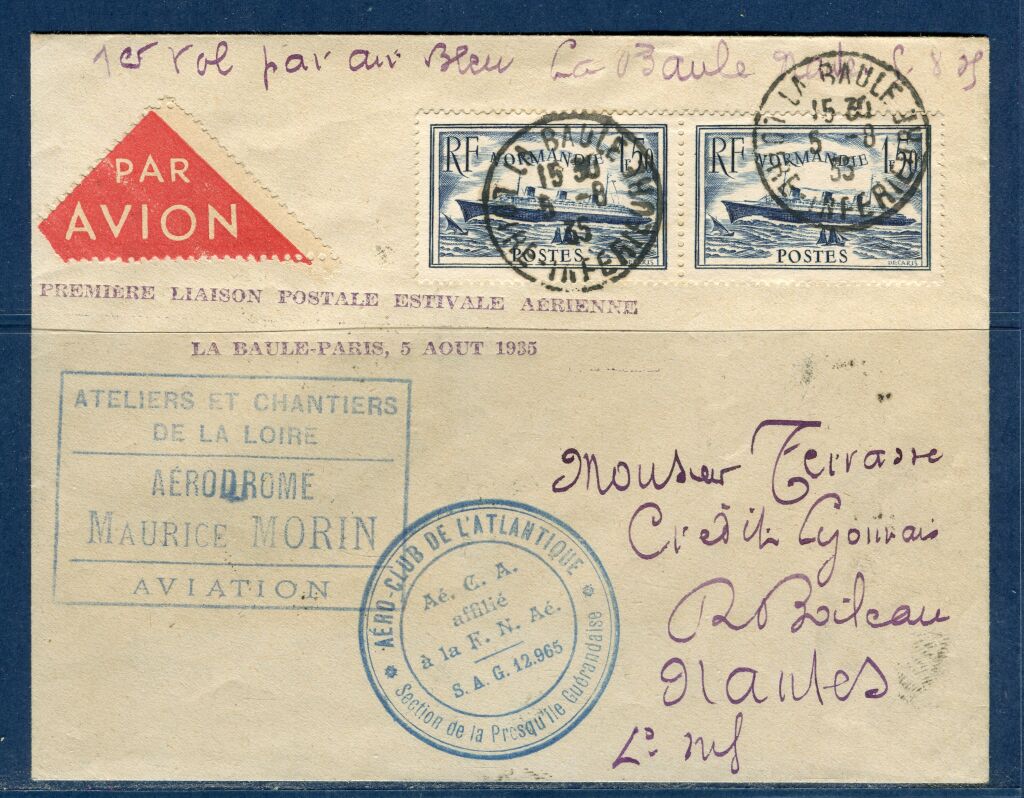 1er vol par air Bleu La Baule
PAR
AVION
RF NORMANDIE 1F50
POSTES
RF NORMANDIE 1F50
POSTES
DECARIS
LA BAULE
15 30
5 -8
35
LOIRE-INFERIEURE
LA BAULE
15 30
5 -8
35
LOIRE-INFERIEURE
PREMIÈRE LIAISON POSTALE ESTIVALE AÉRIENNE
LA BAULE-PARIS, 5 AOUT 1935
ATELIERS ET CHANTIERS
DE LA LOIRE
AÉRODROME
MAURICE MORIN
AVIATION
AÉRO-CLUB DE L'ATLANTIQUE
Aé. C. A.
affilié
à la F. N. Aé.
S. A. G. 12.965
Section de la Presqu'île Guérandaise
Monsieur Terrasse
Crédit Lyonnais
R Boileau
Nantes
Lre Inf